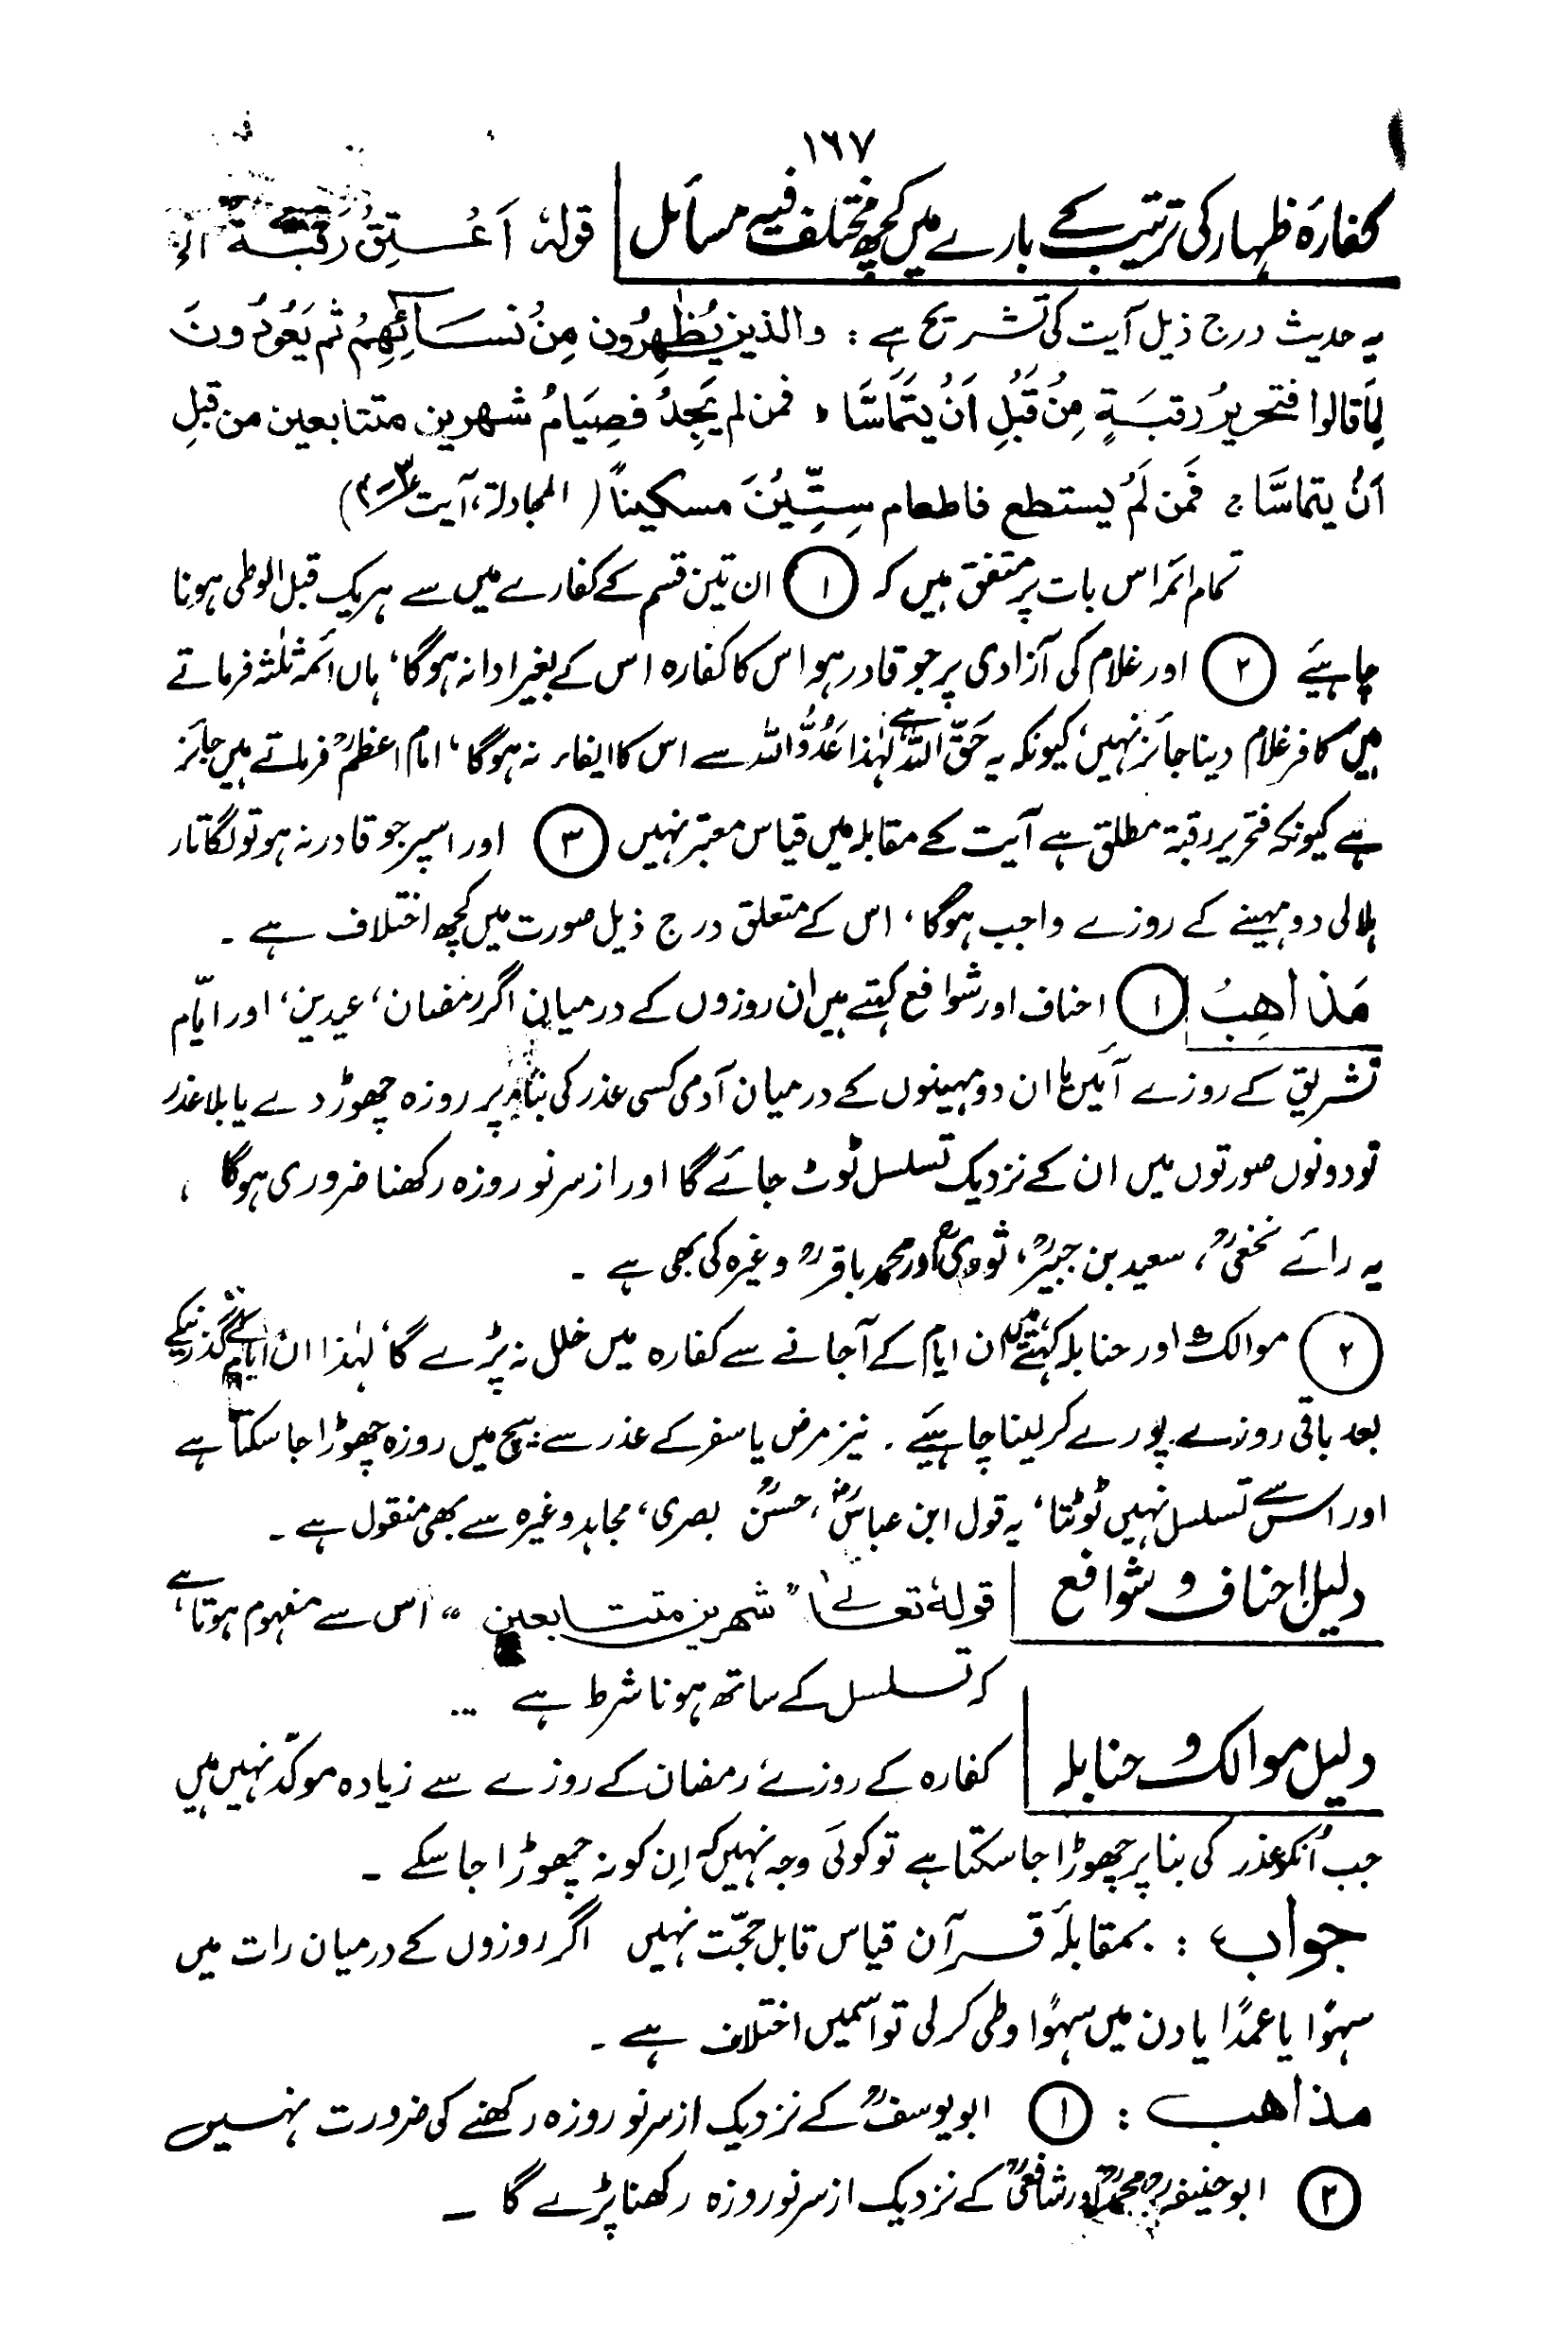 ۱۶۷
کفارۂ ظہار کی ترتیب کے بارے میں کچھ مختلف فیہ مسائل قولہٗ اَعْتِقْ رَقَبَۃً الخ
یہ حدیث درج ذیل آیت کی تشریح ہے : والذین یُظٰھِرُون مِنْ نسَائِھِمْ ثم یَعُوْدُونَ
لِمَا قالوا فتحریرُ رقبَۃٍ مِنْ قَبْلِ اَنْ یتَمَاسَّا، فمن لم یَجِدْ فَصِیَامُ شھرین متتابعین من قبلِ
اَنْ یتماسَّا، فَمن لَمْ یستطع فاطعام سِتِّیْنَ مسکیناً (المجادلۃ، آیت ۳-۴)
تمام ائمہ اس بات پر متفق ہیں کہ ① ان تین قسم کے کفارے میں سے ہر یک قبل الوطی ہونا
چاہئیے ② اور غلام کی آزادی پر جو قادر ہو اس کا کفارہ اس کے بغیر ادا نہ ہوگا، ہاں ائمہ ثلٰثہ فرماتے
ہیں کافر غلام دینا جائز نہیں، کیونکہ یہ حَقّ اللہ ہے لہٰذا عَدُوُّ اللہ سے اس کا ایفاء نہ ہوگا، امام اعظمؒ فرماتے ہیں جائز
ہے کیونکہ فتحریر رقبۃ مطلق ہے آیت کے مقابلہ میں قیاس معتبر نہیں ③ اور اسپر جو قادر نہ ہو تو لگاتار
ہلالی دو مہینے کے روزے واجب ہوگا، اس کے متعلق درج ذیل صورت میں کچھ اختلاف ہے ۔
مَذاھِبُ ① احناف اور شوافع کہتے ہیں ان روزوں کے درمیان اگر رمضان، عیدین، اور ایّام
تشریق کے روزے آئیں یا ان دو مہینوں کے درمیان آدمی کسی عذر کی بناء پر روزہ چھوڑ دے یا بلا عذر
تو دونوں صورتوں میں ان کے نزدیک تسلسل ٹوٹ جائے گا اور از سر نو روزہ رکھنا ضروری ہوگا ،
یہ رائے نخعیؒ، سعید بن جبیرؒ، ثوریؒ اور محمد باقرؒ وغیرہ کی بھی ہے ۔
② موالک اور حنابلہ کہتے ہیں ان ایام کے آجانے سے کفارہ میں خلل نہ پڑے گا، لہٰذا ان ایام کے گذرنیکے
بعد باقی روزے پورے کر لینا چاہئیے . نیز مرض یا سفر کے عذر سے بیچ میں روزہ چھوڑا جا سکتا ہے
اور اس سے تسلسل نہیں ٹوٹتا، یہ قول ابن عباسؓ، حسنؒ بصری، مجاہد وغیرہ سے بھی منقول ہے ۔
دلیل احناف و شوافع قولہٗ تعالےٰ "شھرین متتابعین" اس سے مفہوم ہوتا ہے
کہ تسلسل کے ساتھ ہونا شرط ہے ...
دلیل موالک و حنابلہ کفارہ کے روزے رمضان کے روزے سے زیادہ موکّد نہیں ہیں
جب اُنکو عذر کی بنا پر چھوڑا جا سکتا ہے تو کوئی وجہ نہیں کہ اِن کو نہ چھوڑا جا سکے ۔
جواب : بمقابلۂ قرآن قیاس قابل حجّت نہیں اگر روزوں کے درمیان رات میں
سہوًا یا عمدًا یا دن میں سہوًا وطی کر لی تو اسمیں اختلاف ہے ۔
مذاھب : ① ابو یوسفؒ کے نزدیک از سر نو روزہ رکھنے کی ضرورت نہیں
② ابو حنیفہؒ، محمدؒ اور شافعیؒ کے نزدیک از سر نو روزہ رکھنا پڑے گا ۔